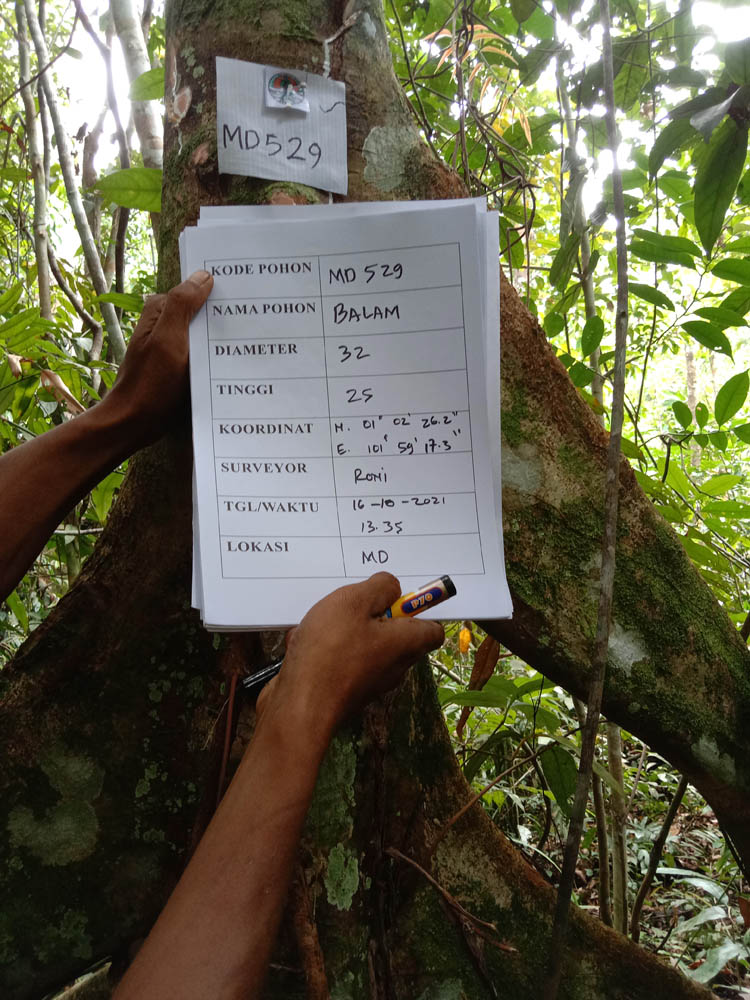 MD529
KODE POHON MD 529
NAMA POHON BALAM
DIAMETER 32
TINGGI 25
KOORDINAT N. 01° 02' 26.2"
E. 101° 59' 17.3"
SURVEYOR RONI
TGL/WAKTU 16-10-2021
13.35
LOKASI MD